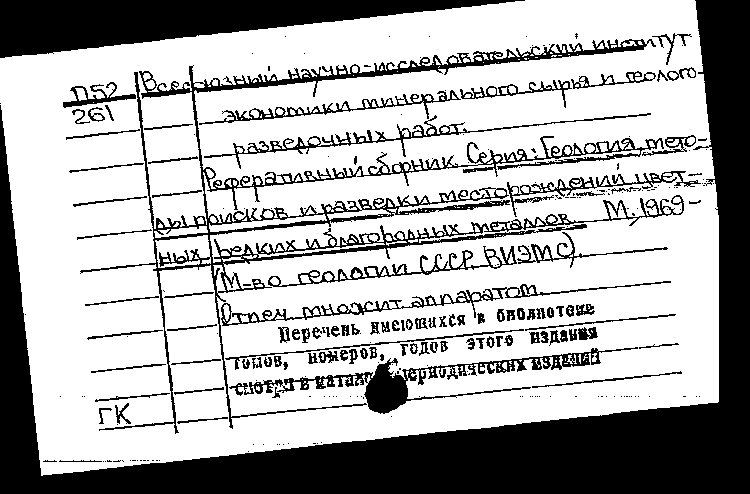 П52 Всесоюзный научно-исследовательский институт
261 экономики минерального сырья и геолого-
разведочных работ.
Реферативный сборник. Серия: Геология, мето-
ды поисков и разведки месторождений цвет-
ных, редких и благородных металлов. М., 1969-
(М-во геологии СССР. ВИЭМС).
Отпеч. множит. аппаратом.
Перечень имеющихся в библиотеке
томов, номеров, годов этого издания
смотри в периодических изданий
ГК